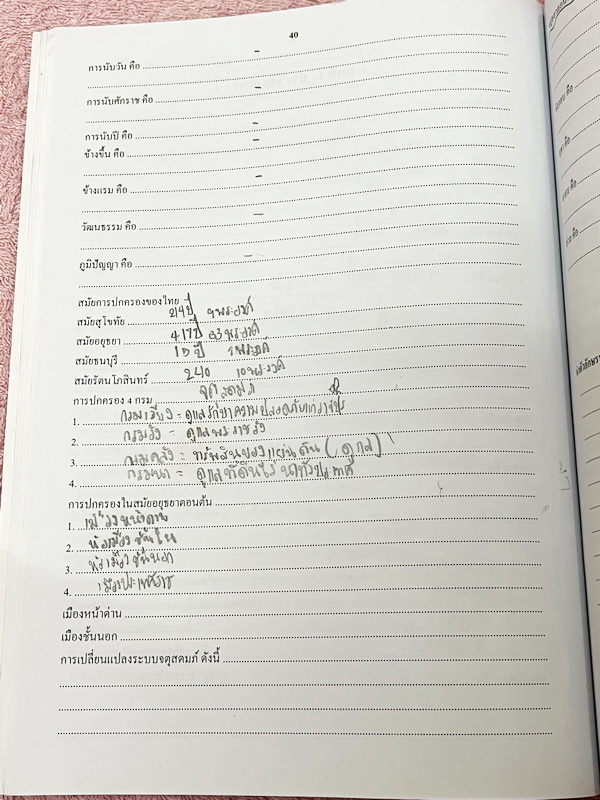 40
การนับวัน คือ
การนับศักราช คือ
การนับปี คือ
ข้างขึ้น คือ
ข้างแรม คือ
วัฒนธรรม คือ
ภูมิปัญญา คือ
สมัยการปกครองของไทย
สมัยสุโขทัย 219ปี 9 พระองค์
สมัยอยุธยา 417ปี 33 พระองค์
สมัยธนบุรี 15 ปี 1 พระองค์
สมัยรัตนโกสินทร์ 240 10 พระองค์
การปกครอง 4 กรม จตุสดมภ์
1. กรมเมือง = ดูแลรักษาความปลอดภัย
2. กรมวัง = ดูแลพระราชวัง
3. กรมคลัง = ทรัพย์สินของแผ่นดิน (ดูแล)
4. กรมนา = ดูแลที่ดินไร่นาทั่วประเทศ
การปกครองในสมัยอยุธยาตอนต้น
1. เมืองหน้าด่าน
2. หัวเมืองชั้นใน
3. หัวเมืองชั้นนอก
4. เมืองประเทศราช
เมืองหน้าด่าน
เมืองชั้นนอก
การเปลี่ยนแปลงระบบจตุสดมภ์ ดังนี้